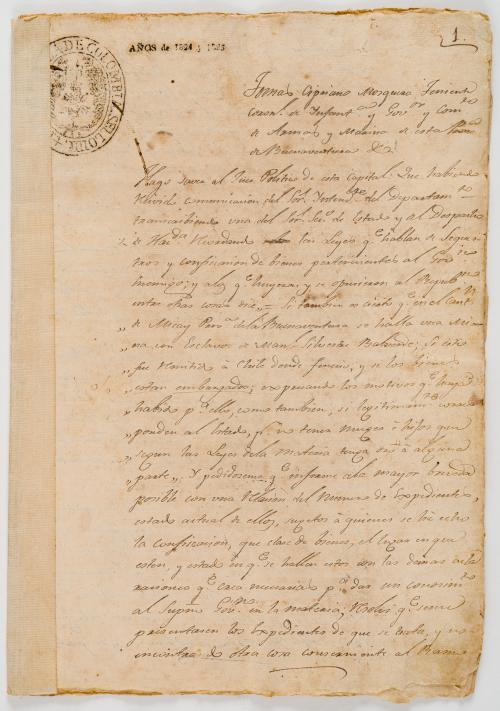 1.
AÑOS de 1824 y 1825
DE COLOMBIA SELLO
Tomas Cipriano Mosquera Teniente
Coronel de Infantª y Govor y Comte
de Armas y Marina de esta
de Buenaventura &ª
Hago saver al Juez Politico de esta Capital Que habiendo
recivido comunicacion del Sor Intendte del Departamto
transcribiendo una del Sor Secº de Estado y del Despacho
de Hacda leyes qe hablan de Seques
tros y confiscacion de bienes pertenecientes al
enemigo; y a los qe huyeran, y se opusieron al
entre otras cosas dice = Si tambien es cierto qe en el Cantn
„ de Micay de la Buenaventura se halla una Mi
„ na con Esclavos de Manl Silvestre Si este
„ fue remitido á Chile donde y si los bienes
„ estan embargados; expresando los motivos qe haya
„ habido pª ello, como tambien, si legitimamte corres
„ ponden al Estado, pr no tener muger é hijos que
„ segun las Leyes de la materia tenga á alguna
„ parte„ Y pidiendoseme qe informe a la mayor brevedad
posible con una relacion del Numero de Expedientes,
estado actual de ellos, sugetos á quienes se há echo
la confiscacion, que clase de bienes, el lugar en que
esten, y estado en qe se hallan estos con las demas acla
raciones qe crea necesarias pª dar un conocimto
al Supmo Govno en la materia;
presentasen los Expedientes de que se trata, y no
encuentra de otra cosa concerniente al Ramo